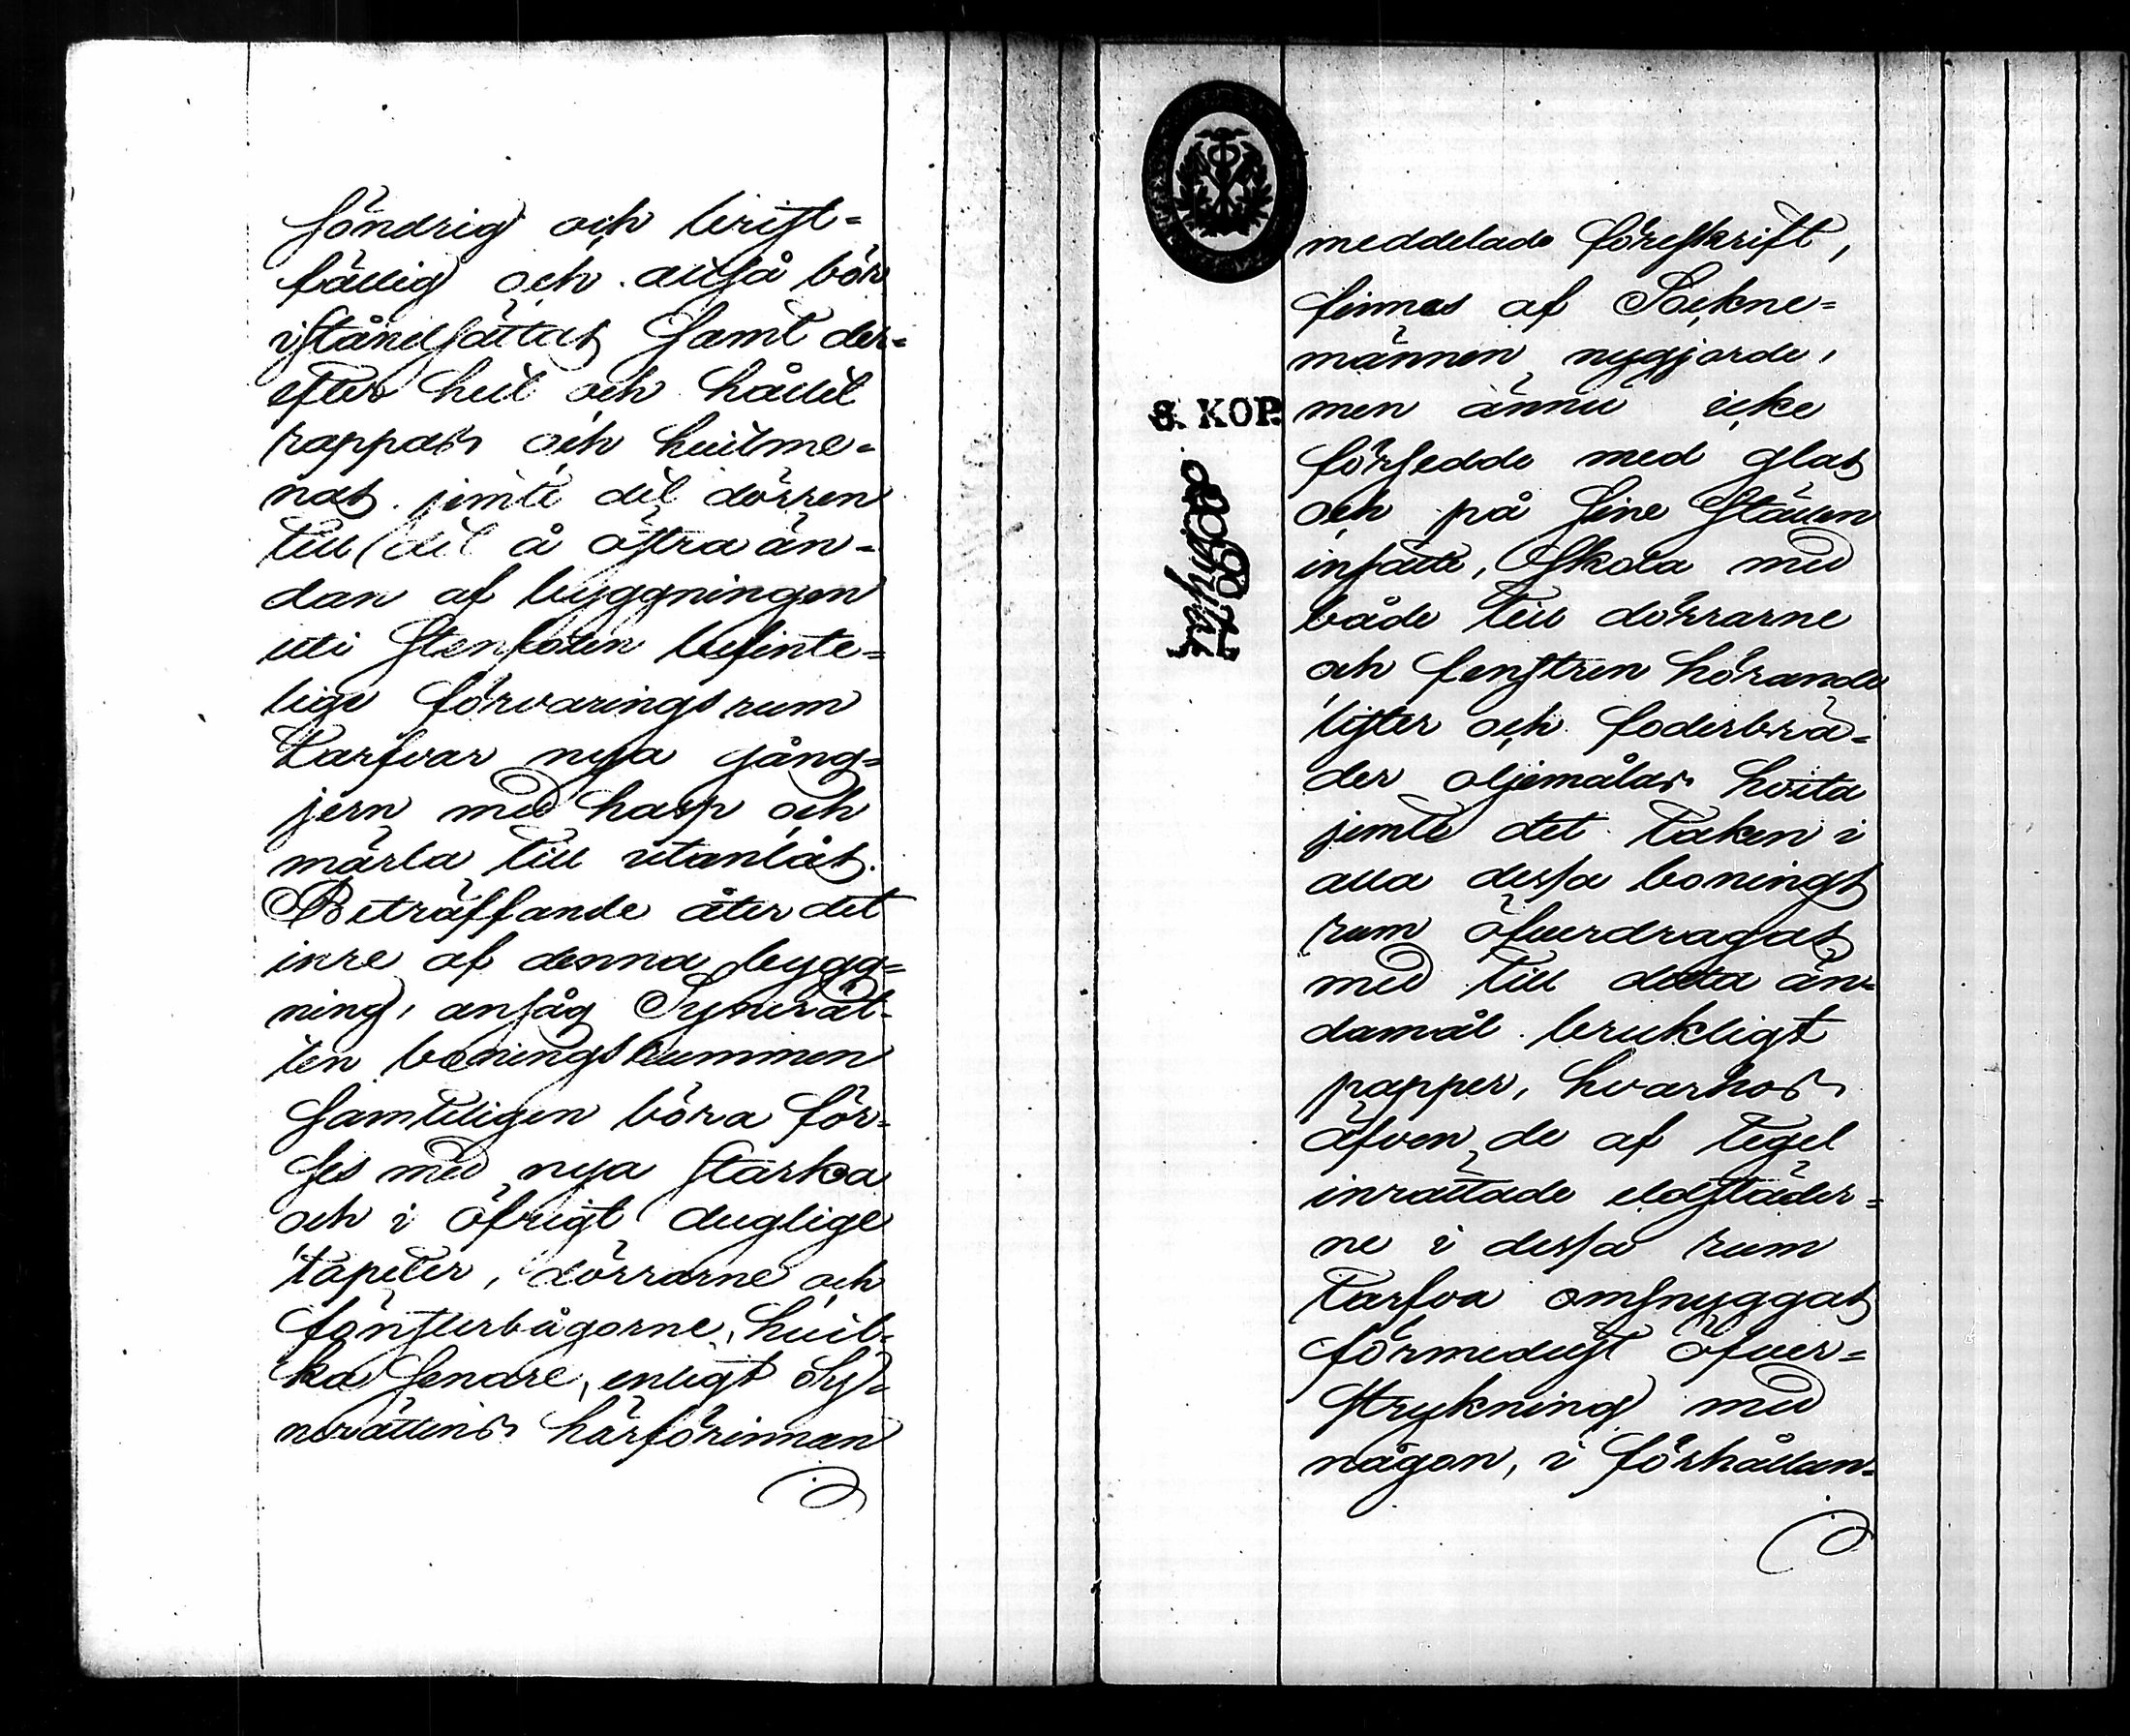 söndrig och brist=
fällig och altså bör
iståndsättas samt der=
efter hel och hållit
rappas och huitme=
nas jemte det dörren
till det å östra än=
dan af byggningen
uti stenfoten befinte=
lige förvaringsrum
tarfvar nya gång=
jern med hasp och
märla till utanlås.
Beträffande åter det
inre af denna bygg=
ning, ansåg Synerät=
ten boningsrummen
samteligen böra för=
ses med nya starka
och i öfrigt duglige
tapeter, dörrarne och
fönsterbågorne, huil=
ka senare, enligt Sy=
nerättens härförinnan
meddelade föreskrift,
finnas af Sockne=
männen nygjorde,
men ännu icke
försedde med glas
och på sine ställen
insatte, Skola med
både till dörrarne
och fenstren hörande
lister och foderbrä=
der oljemålas hvita
jemte det taken i
alla dessa bonings
rum öfuerdragas
med till detta än=
damål brukligt
papper, hvarhos
äfven de af tegel
inrättade eldstäder=
ne i dessa rum
tarfva omsnyggas
förmedelst öfuer=
strykning med
någon, i förhållan=
8. KOP.